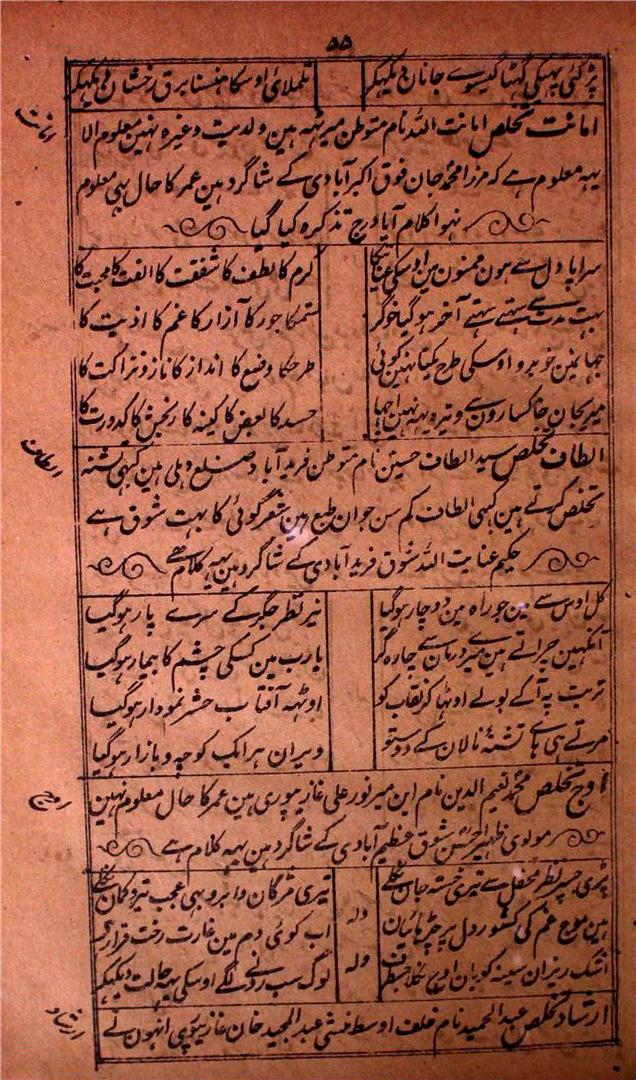 ۵۵
پڑ گئی پھیکی گھٹا گیسوے جانان دیکھکر تلملائی اوسکا ہنسنا برق رخشان دیکھکر
امانت
امانت تخلص امانت اللہ نام متوطن میرٹھہ ہین ولدیت وغیرہ نہین معلوم الا
یہہ معلوم ہے کہ مرزا محمد جان فوق اکبرآبادی کے شاگرد ہین عمر کا حال بھی معلوم
نہوا کلام آبا درج تذکرہ کیا گیا
سراپا دل سے ہون ممنون مین اوسکی عنایت کا کرم کا لطف کا شفقت کا الفت کا محبت کا
بہت مدت سے سہتے سہتے آخر ہو گیا خوگر ستم کا جور کا آزار کا غم کا اذیت کا
جہانمین خوبرو اوسکی طرح یکتا نہین کوئی طرح کا وضع کا انداز کا ناز و نزاکت کا
خاکسارون سے وتیرہ یہہ نہین اچھا حسد کا بغض کا کینہ کا رنجش کا کدورت کا
الطاف
الطاف تخلص سید الطاف حسین نام متوطن فرید آباد ضلع دہلی ہین کبھی تشنہ
تخلص کرتے ہین کبھی الطاف کم سن جوان طبع ہین شعر گوئی کا بہت شوق ہے
حکیم عنایت اللہ شوق فریدآبادی کے شاگرد ہین یہہ کلام ہے
کل اوس سے مین جو راہ مین دوچار ہوگیا تیر نظر جگر کے مرے پار ہوگیا
آنکھین چراتے ہین مرے درمان سے چارہ گر یارب مین کسکی چشم کا بیمار ہوگیا
تربت پہ آکے بولے اوٹھا کر نقاب کو اوٹھہ آفتاب حشر نمودار ہوگیا
مرتے ہی ہاے تشنۂ نالان کے دوستو ویران ہر ایک کوچہ و بازار ہوگیا
اوج
اوج تخلص محمد نعیم الدین نام ابن میر نور علی غازیپوری ہین عمر کا حال معلوم نہین
مولوی ظہیر احسن شوق عظیم آبادی کے شاگرد ہین یہہ کلام ہے
پڑی جسپر نظر محفل سے تیری خستہ جان نکلے تیری مژگان و ابرو بھی عجب تیر و کمان نکلے
ہین فوج غم کی کشور دل پر چڑہائیان ولہ اب کوئی دم مین غارت رخت قرار ہے
اشک ریزان سینہ کوبان اوج مضطر ولہ لوگ سب رونے لگے اوسکی یہہ حالت دیکھکر
ارشاد
ارشاد تخلص عبدالحمید نام خلف اوسط منشی عبدالمجید خان غازیپوری انہون نے